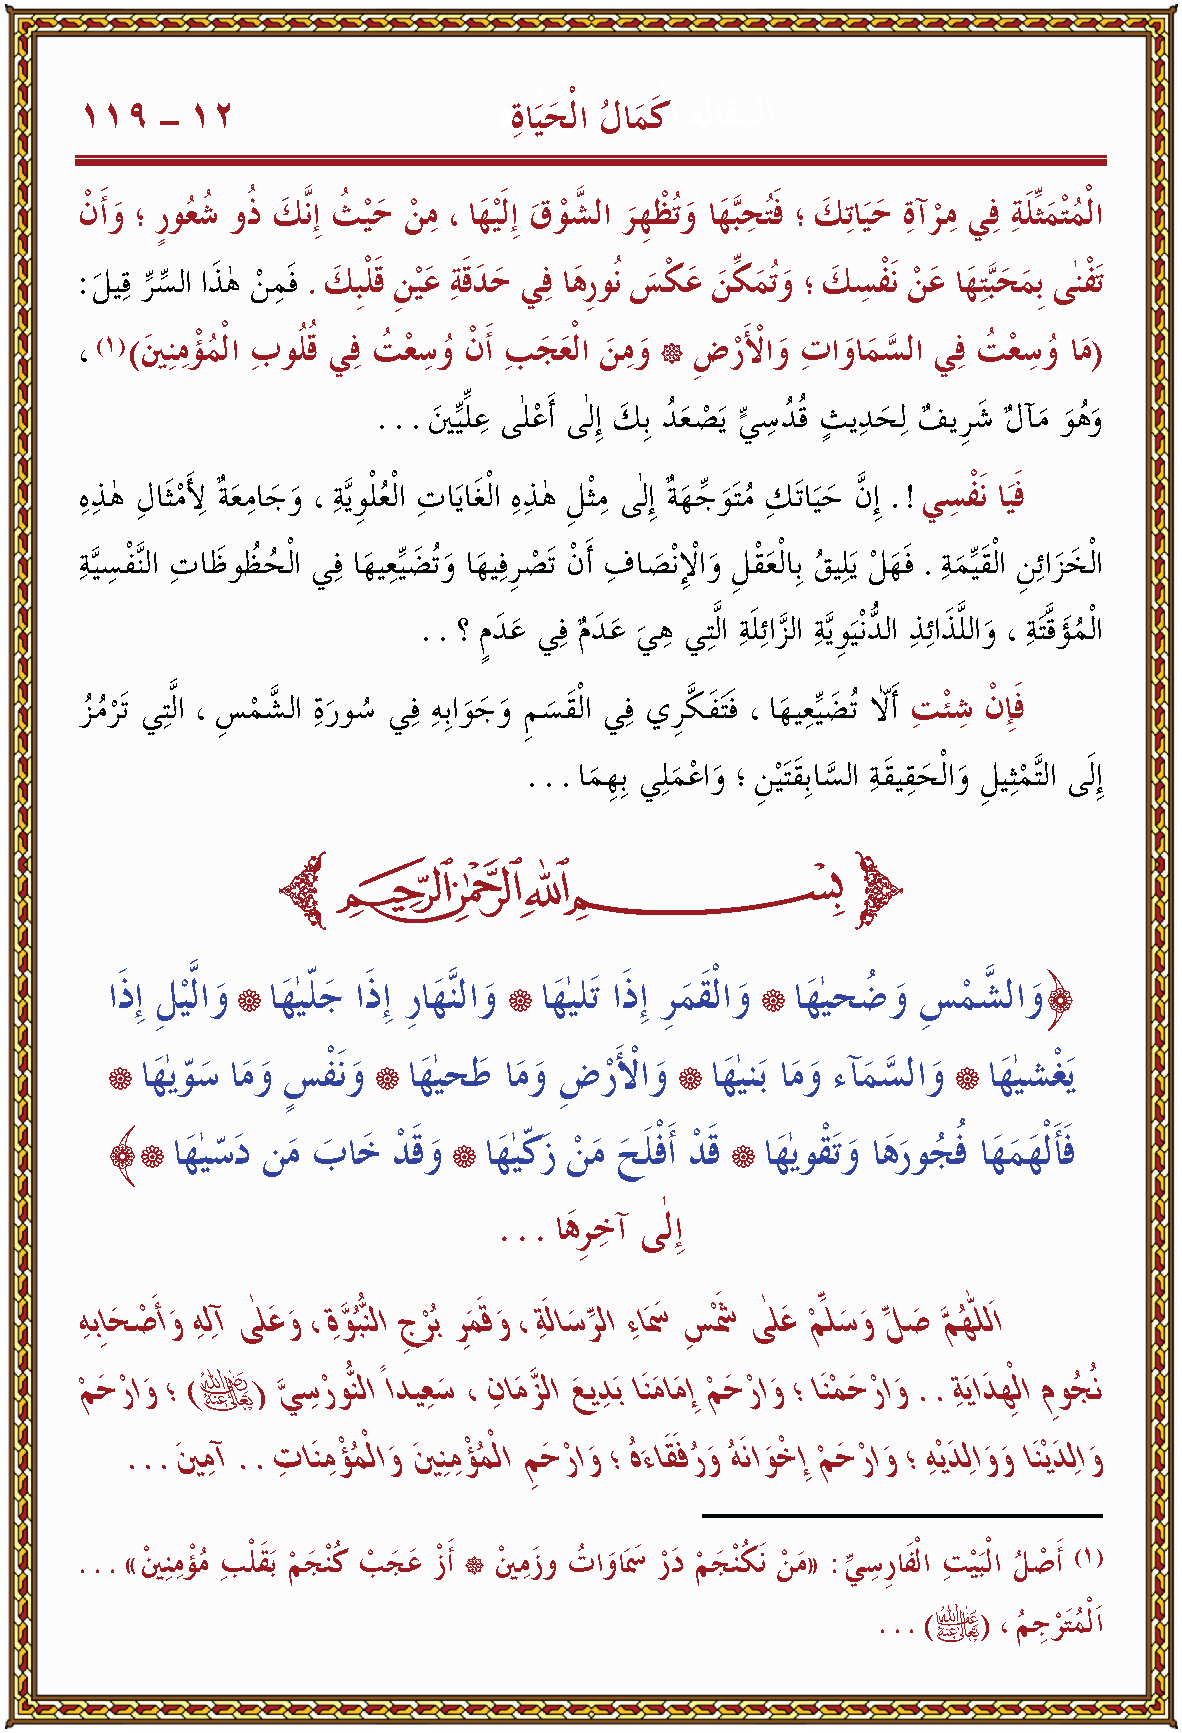 كَمَالُ الْحَيَاةِ ١٢ ــ ١١٩
الْمُتَمَثِّلَةِ فِي مِرْآةِ حَيَاتِكَ ؛ فَتُحِبَّهَا وَتُظْهِرَ الشَّوْقَ إِلَيْهَا ، مِنْ حَيْثُ إِنَّكَ ذُو شُعُورٍ ؛ وَأَنْ
تَفْنٰى بِمَحَبَّتِهَا عَنْ نَفْسِكَ ؛ وَتُمَكِّنَ عَكْسَ نُورِهَا فِي حَدَقَةِ عَيْنِ قَلْبِكَ . فَمِنْ هٰذَا السِّرِّ قِيلَ :
(مَا وُسِعْتُ فِي السَّمَاوَاتِ وَالْأَرْضِ ۞ وَمِنَ الْعَجَبِ أَنْ وُسِعْتُ فِي قُلُوبِ الْمُؤْمِنِينَ)(١) ،
وَهُوَ مَآلٌ شَرِيفٌ لِحَدِيثٍ قُدُسِيٍّ يَصْعَدُ بِكَ إِلٰى أَعْلٰى عِلِّيِّينَ . . .
فَيَا نَفْسِي ! . إِنَّ حَيَاتَكِ مُتَوَجِّهَةٌ إِلٰى مِثْلِ هٰذِهِ الْغَايَاتِ الْعُلْوِيَّةِ ، وَجَامِعَةٌ لِأَمْثَالِ هٰذِهِ
الْخَزَائِنِ الْقَيِّمَةِ . فَهَلْ يَلِيقُ بِالْعَقْلِ وَالْإِنْصَافِ أَنْ تَصْرِفِيهَا وَتُضَيِّعِيهَا فِي الْحُظُوظَاتِ النَّفْسِيَّةِ
الْمُؤَقَّتَةِ ، وَاللَّذَائِذِ الدُّنْيَوِيَّةِ الزَّائِلَةِ الَّتِي هِيَ عَدَمٌ فِي عَدَمٍ ؟ . .
فَإِنْ شِئْتِ أَلَّا تُضَيِّعِيهَا ، فَتَفَكَّرِي فِي الْقَسَمِ وَجَوَابِهِ فِي سُورَةِ الشَّمْسِ ، الَّتِي تَرْمُزُ
إِلَى التَّمْثِيلِ وَالْحَقِيقَةِ السَّابِقَتَيْنِ ؛ وَاعْمَلِي بِهِمَا . . .
بِسْمِ اللهِ الرَّحْمٰنِ الرَّحِيمِ
﴿وَالشَّمْسِ وَضُحٰيهَا ۞ وَالْقَمَرِ إِذَا تَلٰيهَا ۞ وَالنَّهَارِ إِذَا جَلّٰيهَا ۞ وَالَّيْلِ إِذَا
يَغْشٰيهَا ۞ وَالسَّمَآءِ وَمَا بَنٰيهَا ۞ وَالْأَرْضِ وَمَا طَحٰيهَا ۞ وَنَفْسٍ وَمَا سَوّٰيهَا ۞
فَأَلْهَمَهَا فُجُورَهَا وَتَقْوٰيهَا ۞ قَدْ أَفْلَحَ مَنْ زَكّٰيهَا ۞ وَقَدْ خَابَ مَنْ دَسّٰيهَا ۞﴾
إِلٰى آخِرِهَا . . .
اَللّٰهُمَّ صَلِّ وَسَلِّمْ عَلٰى شَمْسِ سَمَاءِ الرِّسَالَةِ ، وَقَمَرِ بُرْجِ النُّبُوَّةِ ، وَعَلٰى آلِهِ وَأَصْحَابِهِ
نُجُومِ الْهِدَايَةِ . . وَارْحَمْنَا ؛ وَارْحَمْ إِمَامَنَا بَدِيعَ الزَّمَانِ ، سَعِيداً النُّورْسِيَّ (رَضِيَ اللهُ تَعَالَى عَنْهُ) ؛ وَارْحَمْ
وَالِدَيْنَا وَوَالِدَيْهِ ؛ وَارْحَمْ إِخْوَانَهُ وَرُفَقَاءَهُ ؛ وَارْحَمِ الْمُؤْمِنِينَ وَالْمُؤْمِنَاتِ . . آمِينَ . . .
(١) أَصْلُ الْبَيْتِ الْفَارِسِيِّ : «مَنْ نَكُنْجَمْ دَرْ سَمَاوَاتُ وزَمِينْ ۞ أَزْ عَجَبْ كُنْجَمْ بَقَلْبِ مُؤْمِنِينْ» . . .
اَلْمُتَرْجِمُ ، (عَفَا اللهُ تَعَالَى عَنْهُ) . . .